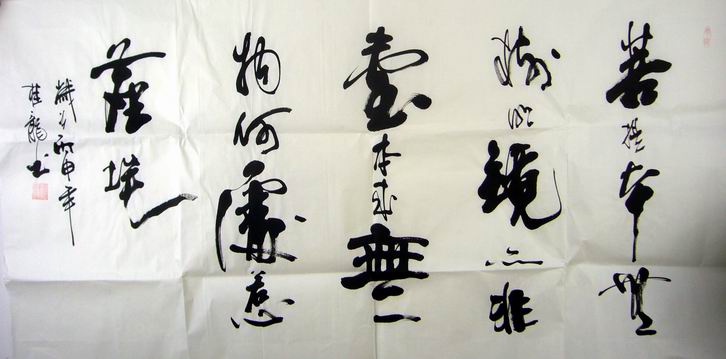 菩提本無
樹明鏡亦非
臺本來無一
物何處惹
塵埃
歲次丙申年
龍书